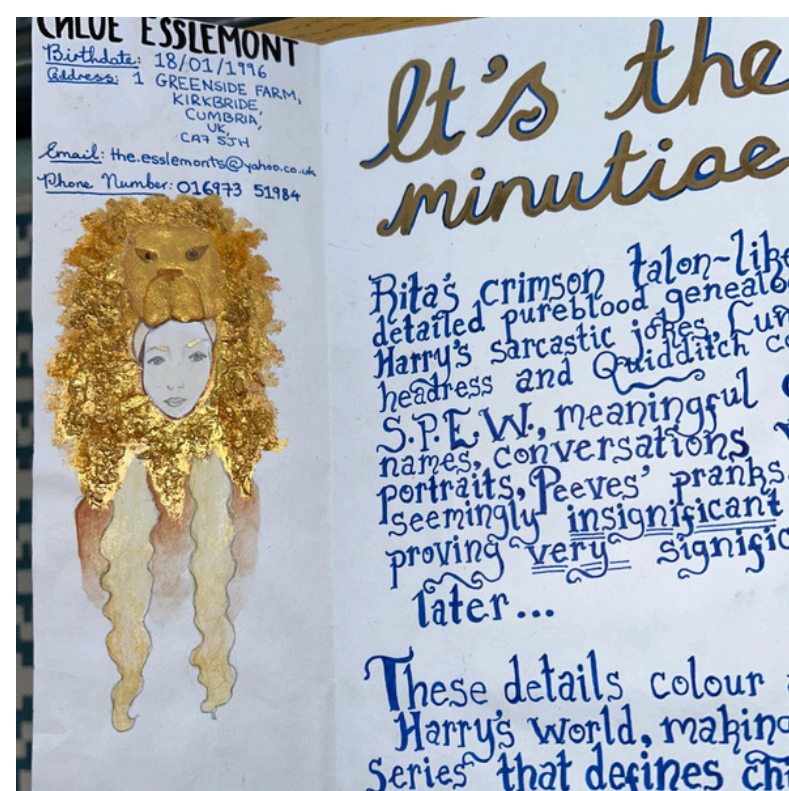 CHLOE ESSLEMONT
Birthdate: 18/01/1996
Address: 1 GREENSIDE FARM,
KIRKBRIDE,
CUMBRIA,
UK,
CA7 5JH
Email: the.esslemonts@yahoo.co.uk
Phone Number: 016973 51984
It's the
minutiae
Rita's crimson talon-like
detailed pureblood
Harry's sarcastic jokes,
headress and Quidditch
S.P.E.W., meaningful
names, conversations
portraits, Peeves' pranks
seemingly insignificant
proving very
later...
These details colour
Harry's world, making
Series that defines